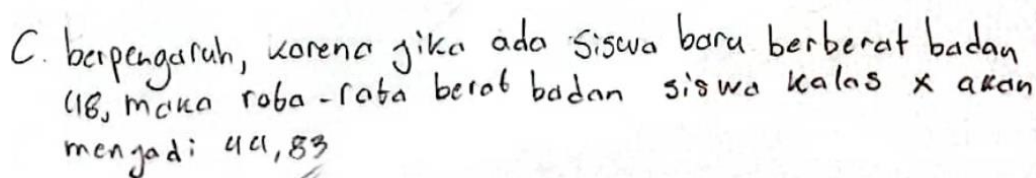 C. berpengaruh, karena jika ada siswa baru berberat badan
48, maka rata-rata berat badan siswa kalas x akan
mengadi 44,83